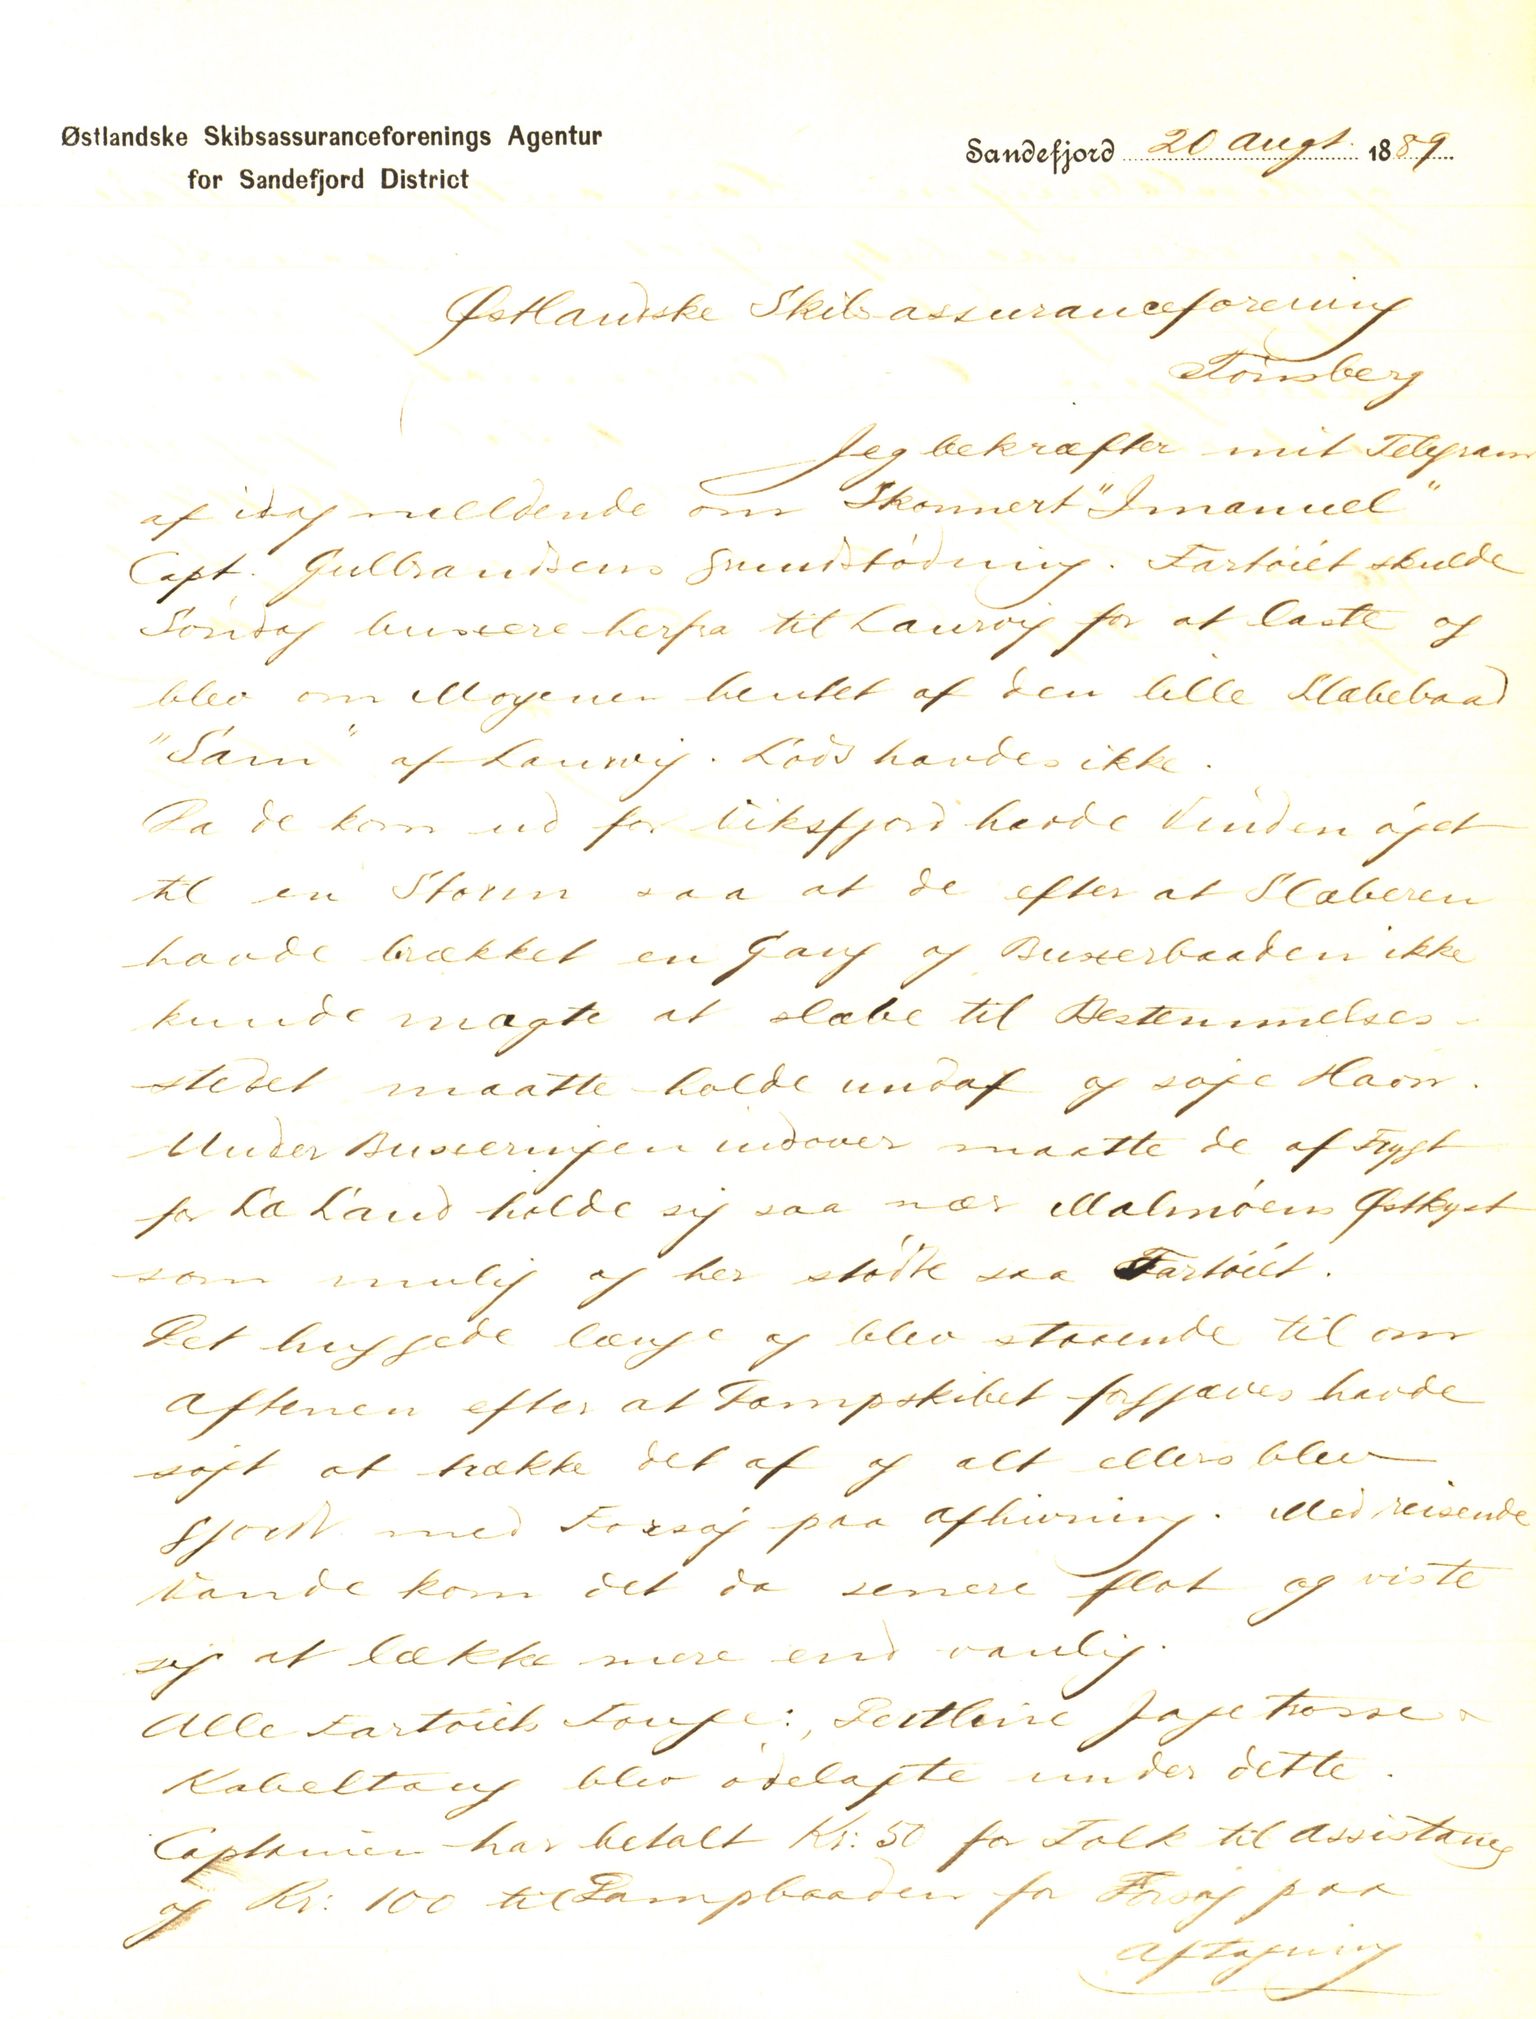 Østlandske Skibsassuranceforenings Agentur
for Sandefjord District
Sandefjord 20 Augt. 1889.
Østlandske Skibsassuranceforening
Tönsberg
Jeg bekræfter mit Telegram
af idag meldende om Skonnert "Imanuel"
Capt. Gulbrandsens Grundstödning. Fartöiet skulde
Söndag buxere herfra til Laurvig for at laste og
blev om Morgenen hentet af den lille Slæbebaad
"Sam" af Laurvig. Lods havdes ikke.
Da de kom ud for Viksfjord havde Vinden öget
til en Storm saa at de efter at Slæberen
havde brækket en Gang og Buxerbaaden ikke
kunde magte at slæbe til Bestemmelses-
stedet maatte holde undaf og søge Havn.
Under Buxeringen indover maatte de af Frygt
for Læ Land holde sig saa nær Malmöens Østkyst
som mulig og her stödte saa Fartöiet.
Det huggede længe og blev staaende til om
Aftenen efter at Dampskibet forgjæves havde
søgt at trække det af og alt ellers blev
gjordt med Forsøg paa afhivning. Med reisende
Vande kom det da senere flot og viste
sig at lække mere end vanlig.
Alle Fartöiets Touge: Pertline Jagetrosse &
Kabeltoug blev ödelagte under dette.
Captainen har betalt Kr: 50 for Folk til Assistance
og Kr: 100 til Dampbaaden for Forsøg paa
Aftagning